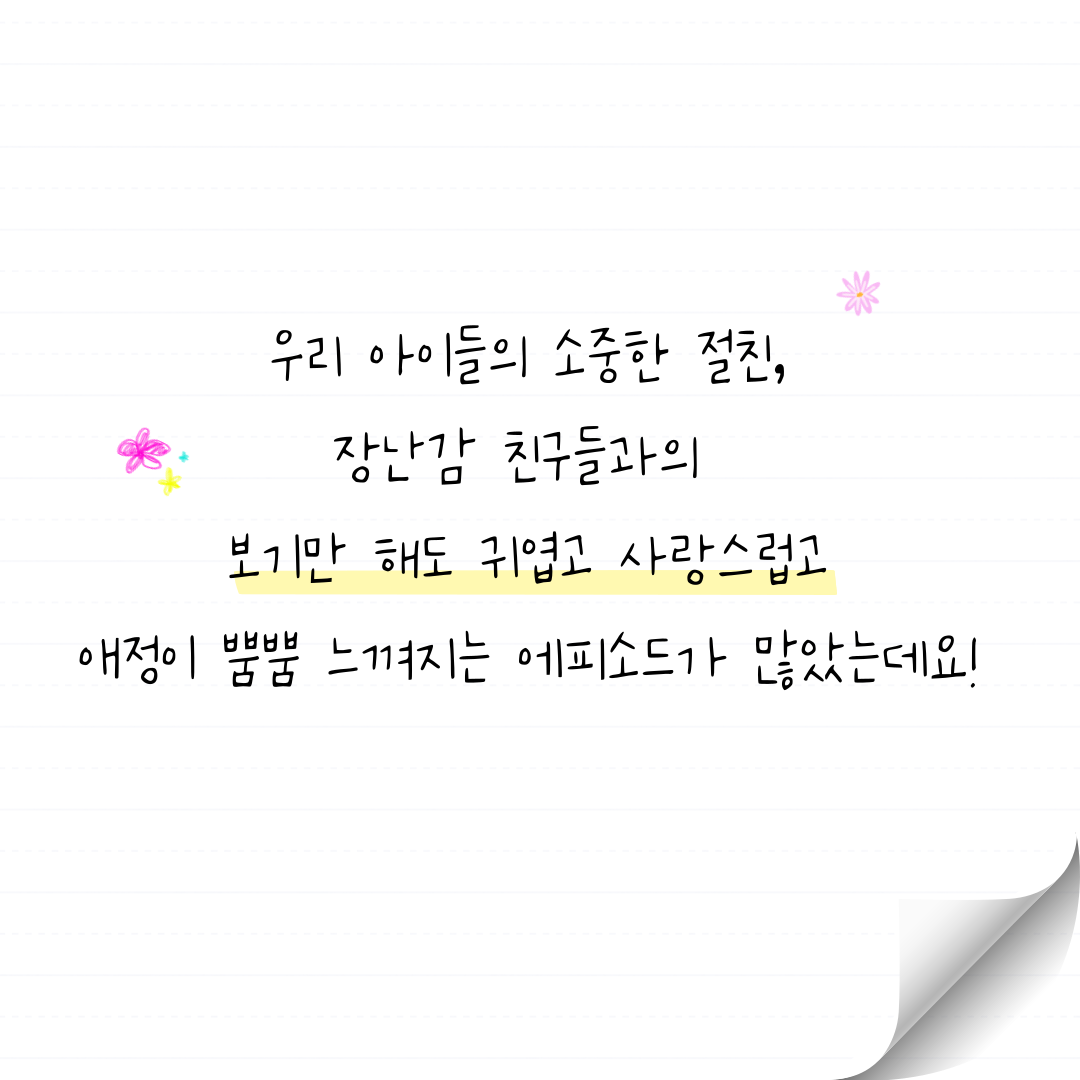 우리 아이들의 소중한 절친,
장난감 친구들과의
보기만 해도 귀엽고 사랑스럽고
애정이 뿜뿜 느껴지는 에피소드가 많았는데요!